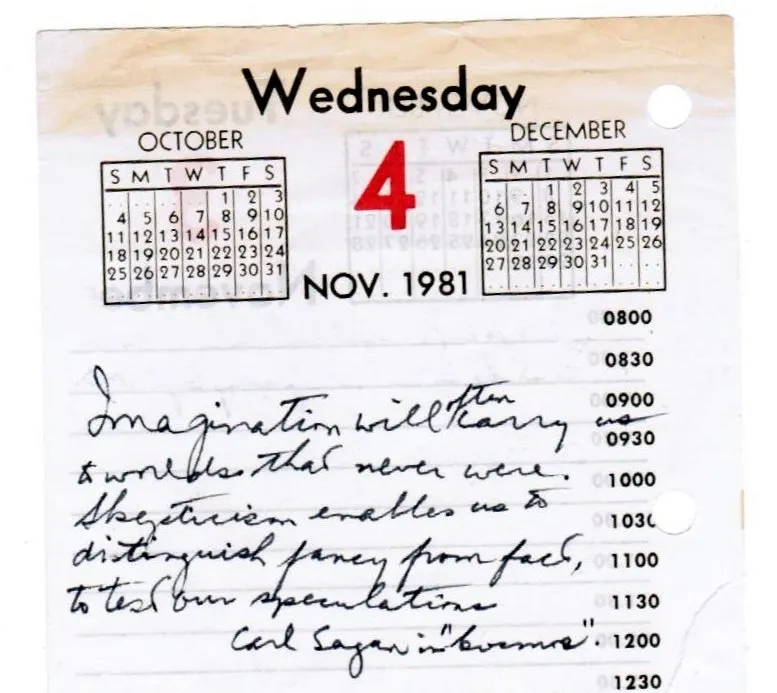 Wednesday
4
OCTOBER
S M T W T F S
1 2 3
4 5 6 7 8 9 10
11 12 13 14 15 16 17
18 19 20 21 22 23 24
25 26 27 28 29 30 31
DECEMBER
S M T W T F S
1 2 3 4 5
6 7 8 9 10 11 12
13 14 15 16 17 18 19
20 21 22 23 24 25 26
27 28 29 30 31
NOV. 1981
0800
0830
0900
0930
1000
1030
1100
1130
1200
1230
Imagination will often carry us
to worlds that never were.
Skepticism enables us to
distinguish fancy from fact,
to test our speculations
Carl Sagan in "Cosmos".